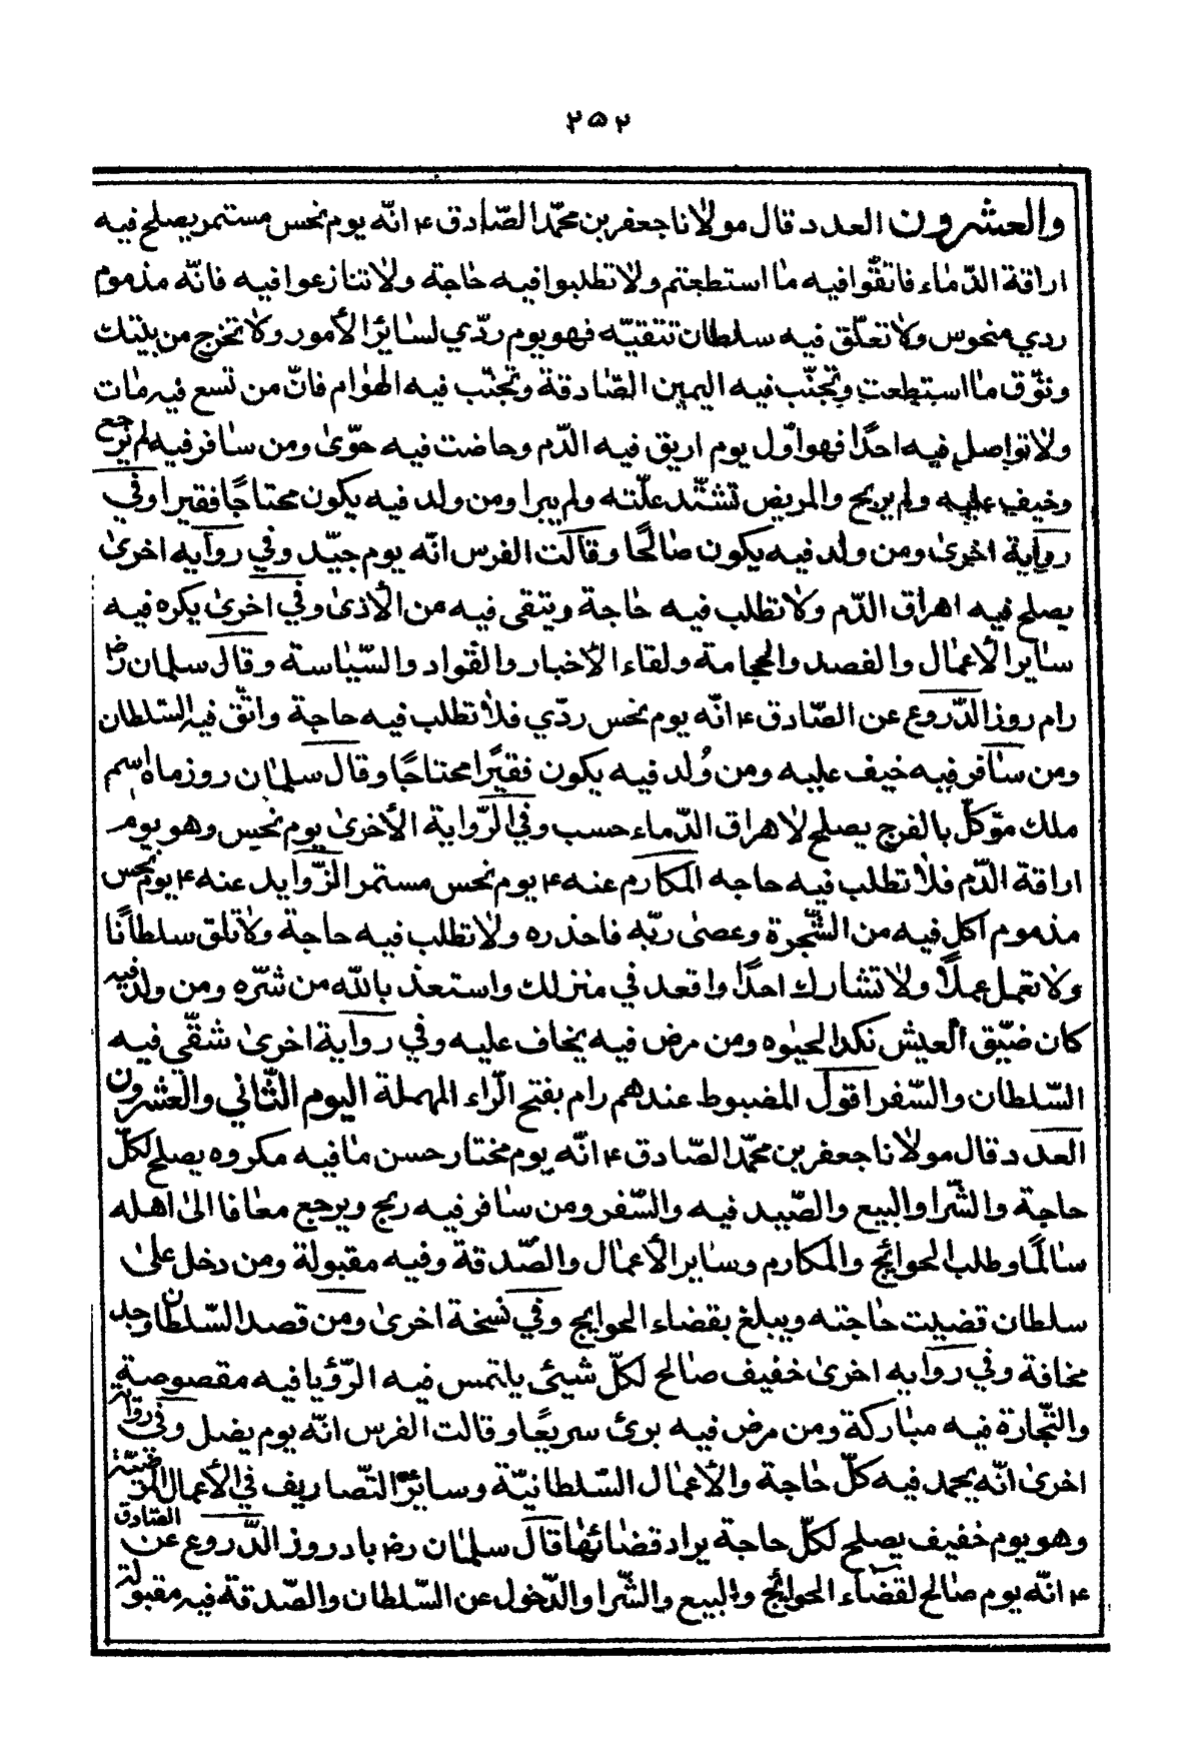 ٢٥٢
والعشرون العدد قال مولانا جعفر بن محمّد الصّادق ۴ انّه يوم نحس مستمر يصلح فيه
اراقة الدّماء فاتقّوا فيه ما استطعتم ولا تطلبوا فيه حاجة ولا تنازعوا فيه فانّه مذموم
ردي منحوس ولا تعلّق فيه سلطان تتقيّه فهو يوم ردّي لساير الأمور ولا تخرج من بيتك
وتوّق ما استطعت وتجنّب فيه اليمين الصّادقة وتجنّب فيه الهوام فانّ من تسع فيه مات
ولا تواصل فيه احدًا فهو اوّل يوم اريق فيه الدّم وحاضت فيه حوّىٰ ومن سافر فيه لم يرجع
وخيف عليه ولم يربح والمريض تشتّد علّته ولم يبرا ومن ولد فيه يكون محتاجًا فقيرا وفي
رواية اخرىٰ ومن ولد فيه يكون صالحًا وقالت الفرس انّه يوم جيّد وفي روايه اخرىٰ
يصلح فيه اهراق الدّم ولا تطلب فيه حاجة ويتقى فيه من الأذىٰ وفي اخرىٰ يكره فيه
ساير الأعمال والفصد والحجامة ولقاء الأخبار والقواد والسّياسة وقال سلمان رض
رام روز الدّروع عن الصّادق ۴ انّه يوم نحس ردّي فلا تطلب فيه حاجة واتّق فيه السّلطان
ومن سافر فيه خيف عليه ومن وُلد فيه يكون فقيرًا محتاجًا وقال سلمان روز ماه اسم
ملك موّكل بالفرج يصلح لاهراق الدّماء حسب وفي الرّواية الأخرىٰ يوم نحس وهو يوم
اراقة الدّم فلا تطلب فيه حاجه المكارم عنه ۴ يوم نحس مستمر الزّوايد عنه ۴ يوم نحس
مذموم اكل فيه من الشّجرة وعصىٰ ربّه فاحذره ولا تطلب فيه حاجة ولا تلق سلطانًا
ولا تعمل عملًا ولا تشارك احدًا واقعد في منزلك واستعذ بالله من شرّه ومن ولد فيه
كان ضيّق العيش نكد الحيٰوه ومن مرض فيه يخاف عليه وفي رواية اخرىٰ شقّي فيه
السّلطان والسّفر اقول المضبوط عندهم رام بفتح الرّاء المهملة اليوم الثّاني والعشرون
العدد قال مولانا جعفر بن محمّد الصّادق ۴ انّه يوم مختار حسن ما فيه مكروه يصلح لكلّ
حاجة والشّرا والبيع والصّيد فيه والسّفر ومن سافر فيه ربح ويرجع معافا الىٰ اهله
سالمًا وطلب الحوايج والمكارم وساير الأعمال والصّدقة وفيه مقبولة ومن دخل علىٰ
سلطان قضيت حاجته ويبلغ بقضاء الحوايج وفي نسخة اخرىٰ ومن قصد السّلطان وجد
مخافة وفي روايه اخرىٰ خفيف صالح لكلّ شيئ يلتمس فيه الرّؤيا فيه مقصوصة
والتّجارة فيه مباركة ومن مرض فيه برئ سريعًا وقالت الفرس انّه يوم يضل وفي رواية
اخرىٰ انّه يحمد فيه كلّ حاجة والأعمال السّلطانيّة وساير التّصاريف في الأعمال المرضيّة
وهو يوم خفيف يصلح لكلّ حاجة يراد قضائها قال سلمان رض باد روز الدّروع عن الصّادق
۴ انّه يوم صالح لقضاء الحوائج والبيع والشّرا والدّخول عن السّلطان والصّدقة فيه مقبولة